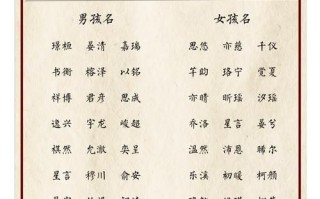 男孩名 女孩名
璟桓 晏清 嘉瑞 思悠 亦慈 千仪
书衡 榕泽 以铭 芊昀 珞宁 觉夏
祥博 君彦 思成 亦晴 昕瑶 汐瑶
逸兴 宇龙 峻超 乔洛 星言 晏兮
祺然 允澈 奕呈 温然 沛恩 稀尔
星言 穆川 俞安 乐溪 初暖 柯颜